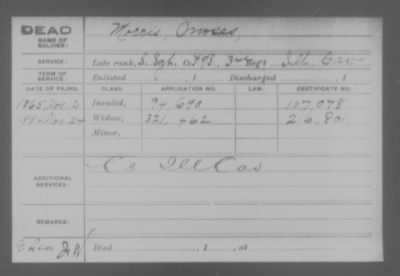 DEAD
NAME OF SOLDIER: Morris,
SERVICE: Late rank, S. Sgt. Co. 3rd Reg't Ill. Cav
TERM OF SERVICE: Enlisted , 1 Discharged , 1
DATE OF FILING. CLASS. APPLICATION NO. LAW. CERTIFICATE NO.
1865 Nov 2 Invalid, 94,690 107,078
Nov 24 Widow, 321,462 216,801
Minor,
ADDITIONAL SERVICES: Ill Cav
REMARKS:
Died , 1 , at